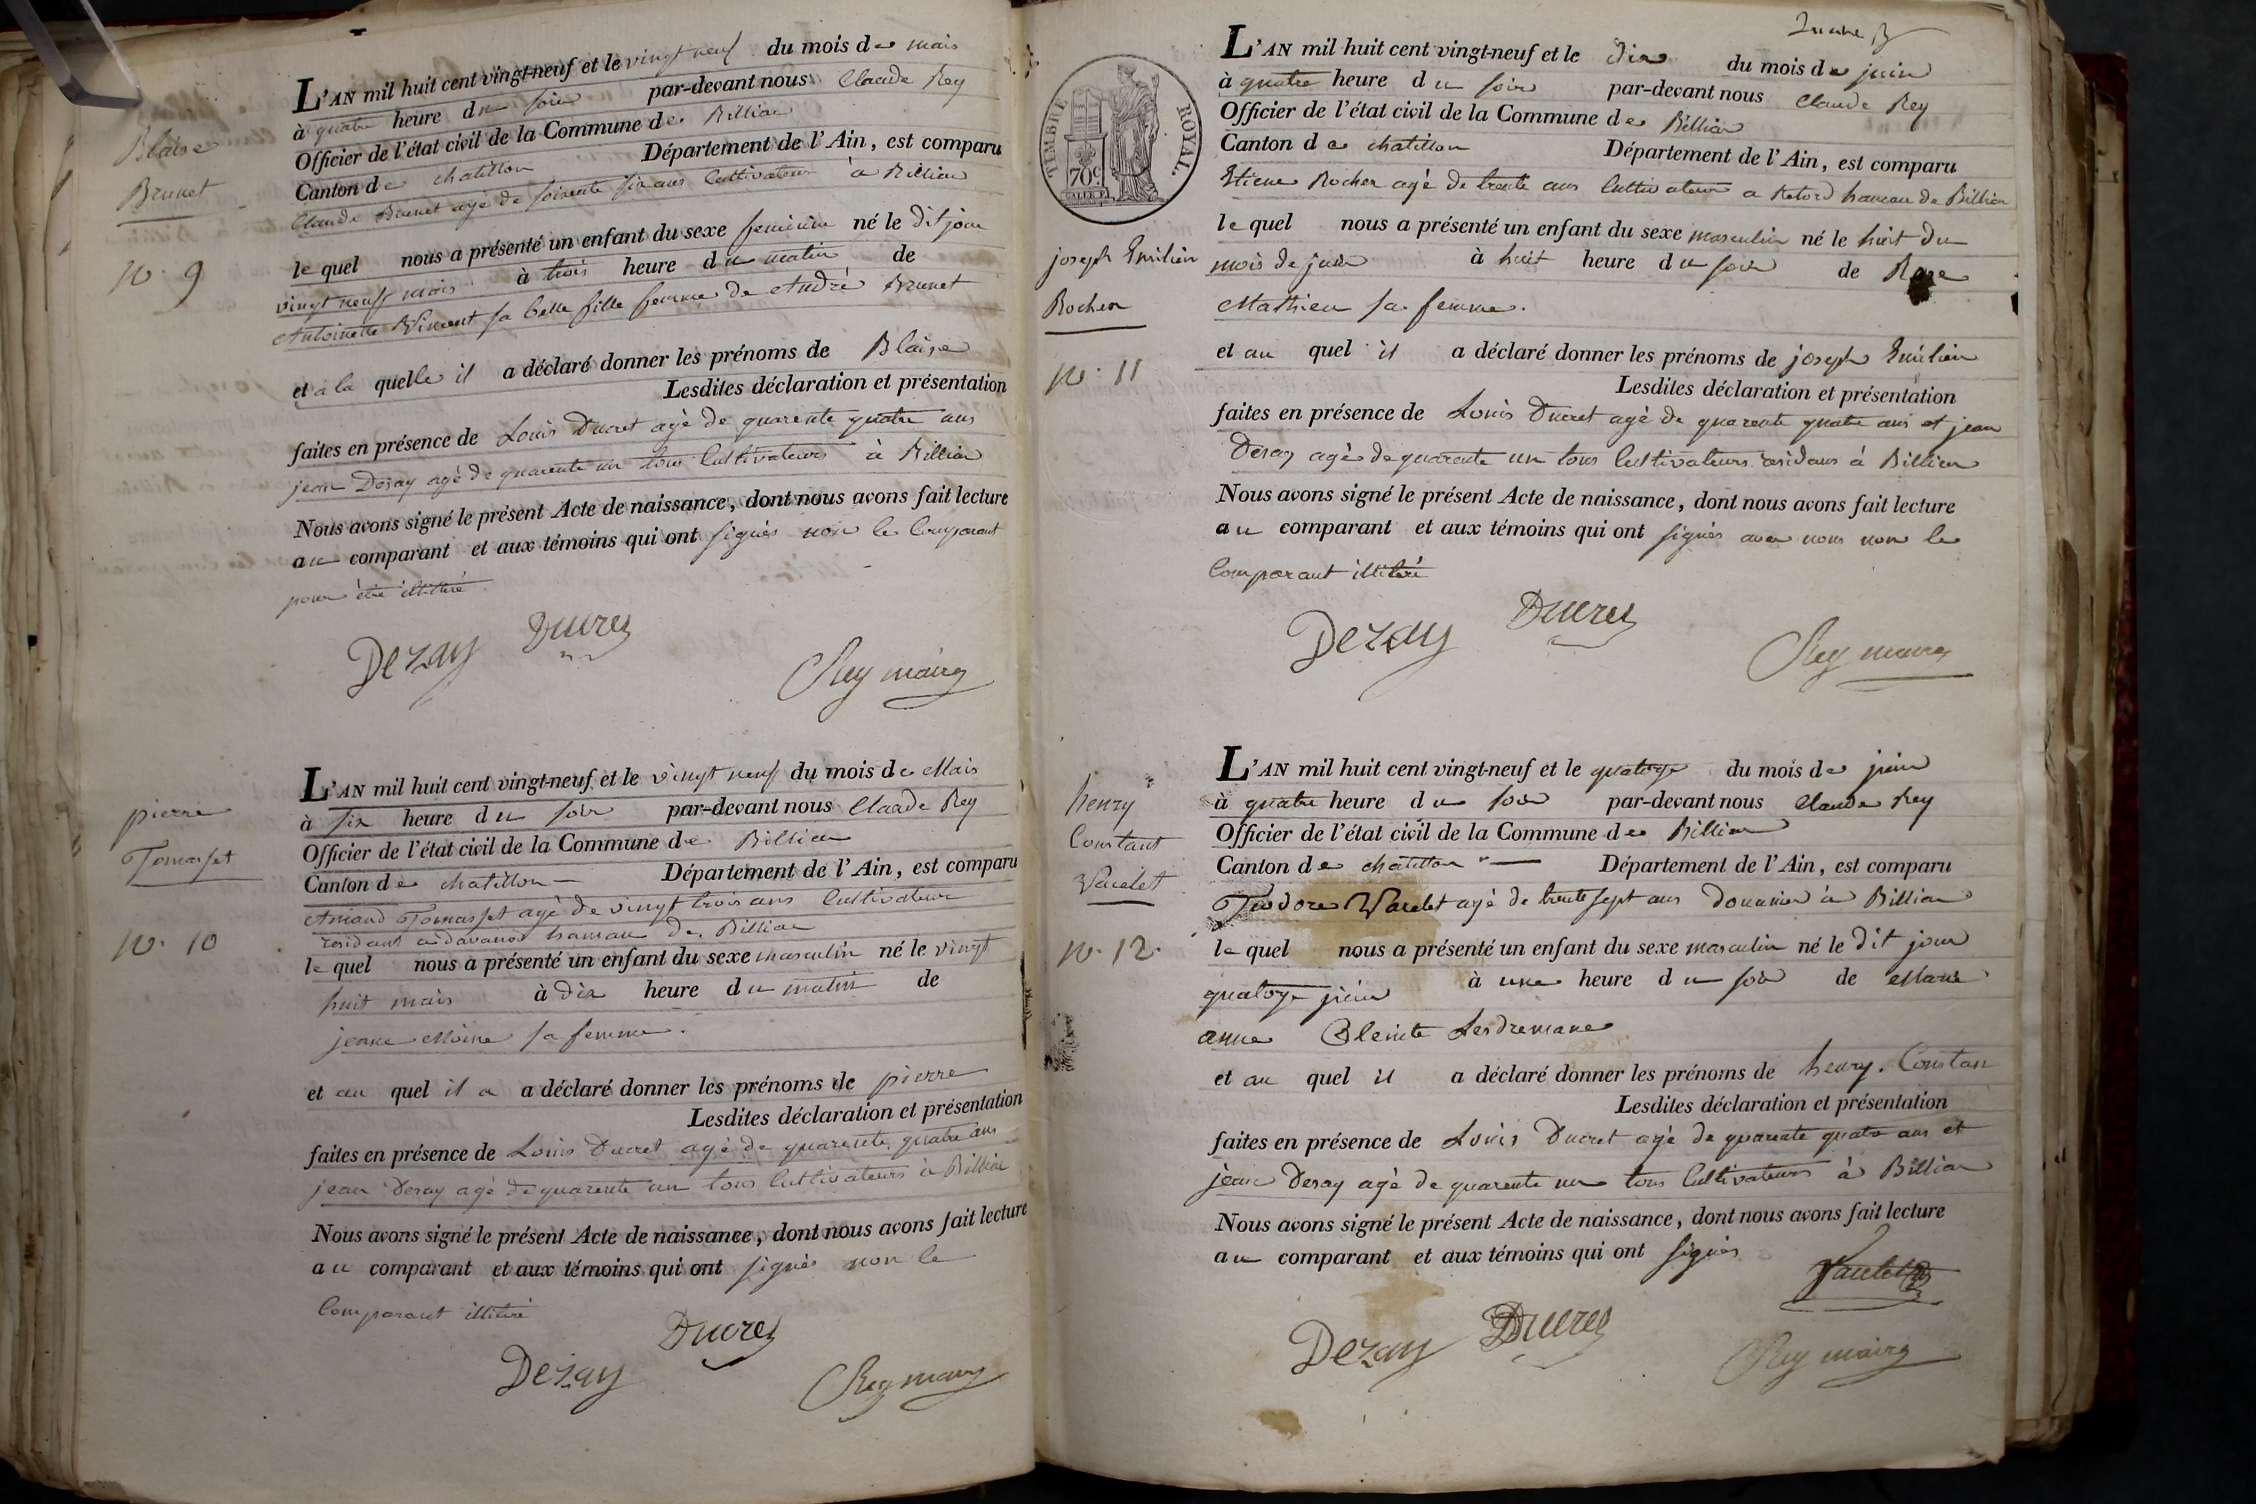 Blaise
Brunet
N°. 9
L'AN mil huit cent vingt-neuf et le vingt neuf du mois de mais
à quatre heure du soir par-devant nous Claude Rey
Officier de l'état civil de la Commune de Billiat
Canton de chatillon Département de l'Ain, est comparu
Claude Brunet agé de soixente six ans Cultivateur à Billiat
le quel nous a présenté un enfant du sexe feminin né le dit jour
vingt neuf mais à trois heure du matin de
Antoinette Vincent sa belle fille femme de André Brunet
et a la quelle il a déclaré donner les prénoms de Blaise
Lesdites déclaration et présentation
faites en présence de Louis Ducret agé de quarente quatre ans
jean Desay agé de quarente un tous Cultivateurs à Billiat
Nous avons signé le présent Acte de naissance, dont nous avons fait lecture
au comparant et aux témoins qui ont signés non le Comparant
pour être illitéré
Dezay Ducret
Rey maire
pierre
Tomasset
N°. 10
L'AN mil huit cent vingt-neuf et le vingt neuf du mois de Mais
à six heure du soir par-devant nous Claude Rey
Officier de l'état civil de la Commune de Billiat
Canton de chatillon Département de l'Ain, est comparu
Tomasset agé de vingt trois ans Cultivateur
residant a davanod hamau de Billiat
le quel nous a présenté un enfant du sexe masculin né le vingt
huit mais à dix heure du matin de
jeane Moine sa femme.
et au quel il a a déclaré donner les prénoms de pierre
Lesdites déclaration et présentation
faites en présence de Louis Ducret agé de quarente quatre ans
jean Desay agé de quarente un tous Cultivateurs à Billiat
Nous avons signé le présent Acte de naissance, dont nous avons fait lecture
au comparant et aux témoins qui ont signés non le
Comparant illitéré
Dezay Ducret
Rey maire
TIMBRE ROYAL.
70c
joseph Emilien
Rocher
N°. 11
L'AN mil huit cent vingt-neuf et le dix du mois de juin
à quatre heure du soir par-devant nous Claude Rey
Officier de l'état civil de la Commune de Billiat
Canton de chatillon Département de l'Ain, est comparu
Etiene Rocher agé de trente ans Cultivateur a Retord hameau de Billiat
le quel nous a présenté un enfant du sexe masculin né le huit du
mois de juin à huit heure du soir de Rose
Mathieu sa femme.
et au quel il a déclaré donner les prénoms de joseph Emilien
Lesdites déclaration et présentation
faites en présence de Louis Ducret agé de quarente quatre ans et jean
Desay agé de quarente un tous Cultivateurs residans à Billiat
Nous avons signé le présent Acte de naissance, dont nous avons fait lecture
au comparant et aux témoins qui ont signés avec nous non le
Comparant illitéré
Dezay Ducret
Rey maire
henry
Constant
Vaulet
N°. 12.
L'AN mil huit cent vingt-neuf et le quatorze du mois de juin
à quatre heure du soir par-devant nous Claude Rey
Officier de l'état civil de la Commune de Billiat
Canton de chatillon Département de l'Ain, est comparu
Tiodore Vaulet agé de trente sept ans Douanier à Billiat
le quel nous a présenté un enfant du sexe masculin né le dit jour
quatorze juin à une heure du soir de Marie
anne
et au quel il a déclaré donner les prénoms de henry. Constan
Lesdites déclaration et présentation
faites en présence de Louis Ducret agé de quarente quatre ans et
jean Desay agé de quarente un tous Cultivateurs à Billiat
Nous avons signé le présent Acte de naissance, dont nous avons fait lecture
au comparant et aux témoins qui ont signés
Vaulet
Dezay Ducret
Rey maire